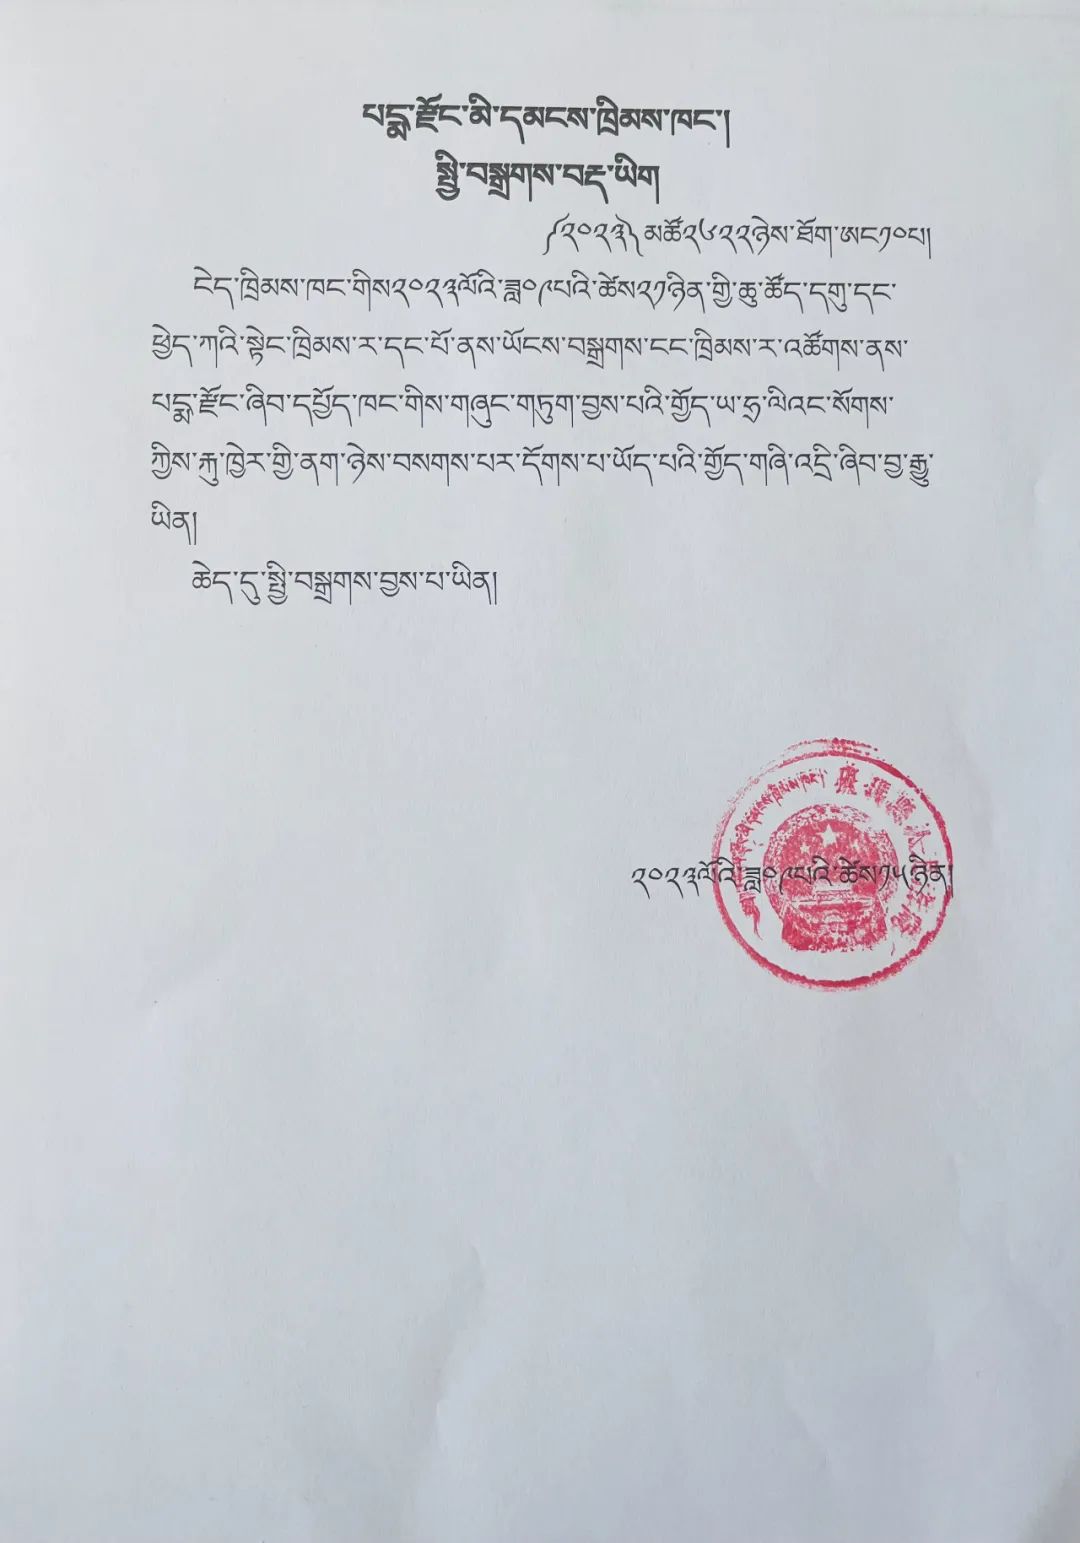 པདྨ་རྫོང་མི་དམངས་ཁྲིམས་ཁང་།
སྤྱི་བསྒྲགས་བརྡ་ཡིག
༼༢༠༢༣༽མཚོ༢༦༢༢ཉེས་ཐོག་ཨང༡༠པ།
ངེད་ཁྲིམས་ཁང་གིས༢༠༢༣ལོའི་ཟླ༠༩པའི་ཚེས༢༡ཉིན་གྱི་ཆུ་ཚོད་དགུ་དང་
ཕྱེད་ཀའི་སྟེང་ཁྲིམས་ར་དང་པོ་ནས་ཡོངས་བསྒྲགས་ངང་ཁྲིམས་ར་འཚོགས་ནས་
པདྨ་རྫོང་ཞིབ་དཔྱོད་ཁང་གིས་གཞུང་གཏུག་བྱས་པའི་གྱོད་ཡ་ཧྲ་ལིའང་སོགས་
ཀྱིས་རྐུ་ཁྱེར་གྱི་ནག་ཉེས་བསགས་པར་དོགས་པ་ཡོད་པའི་གྱོད་གཞི་འདྲི་ཞིབ་བྱ་རྒྱུ་
ཡིན།
ཆེད་དུ་སྤྱི་བསྒྲགས་བྱས་པ་ཡིན།
༢༠༢༣ལོའི་ཟླ༠༩པའི་ཚེས༡༥ཉིན།